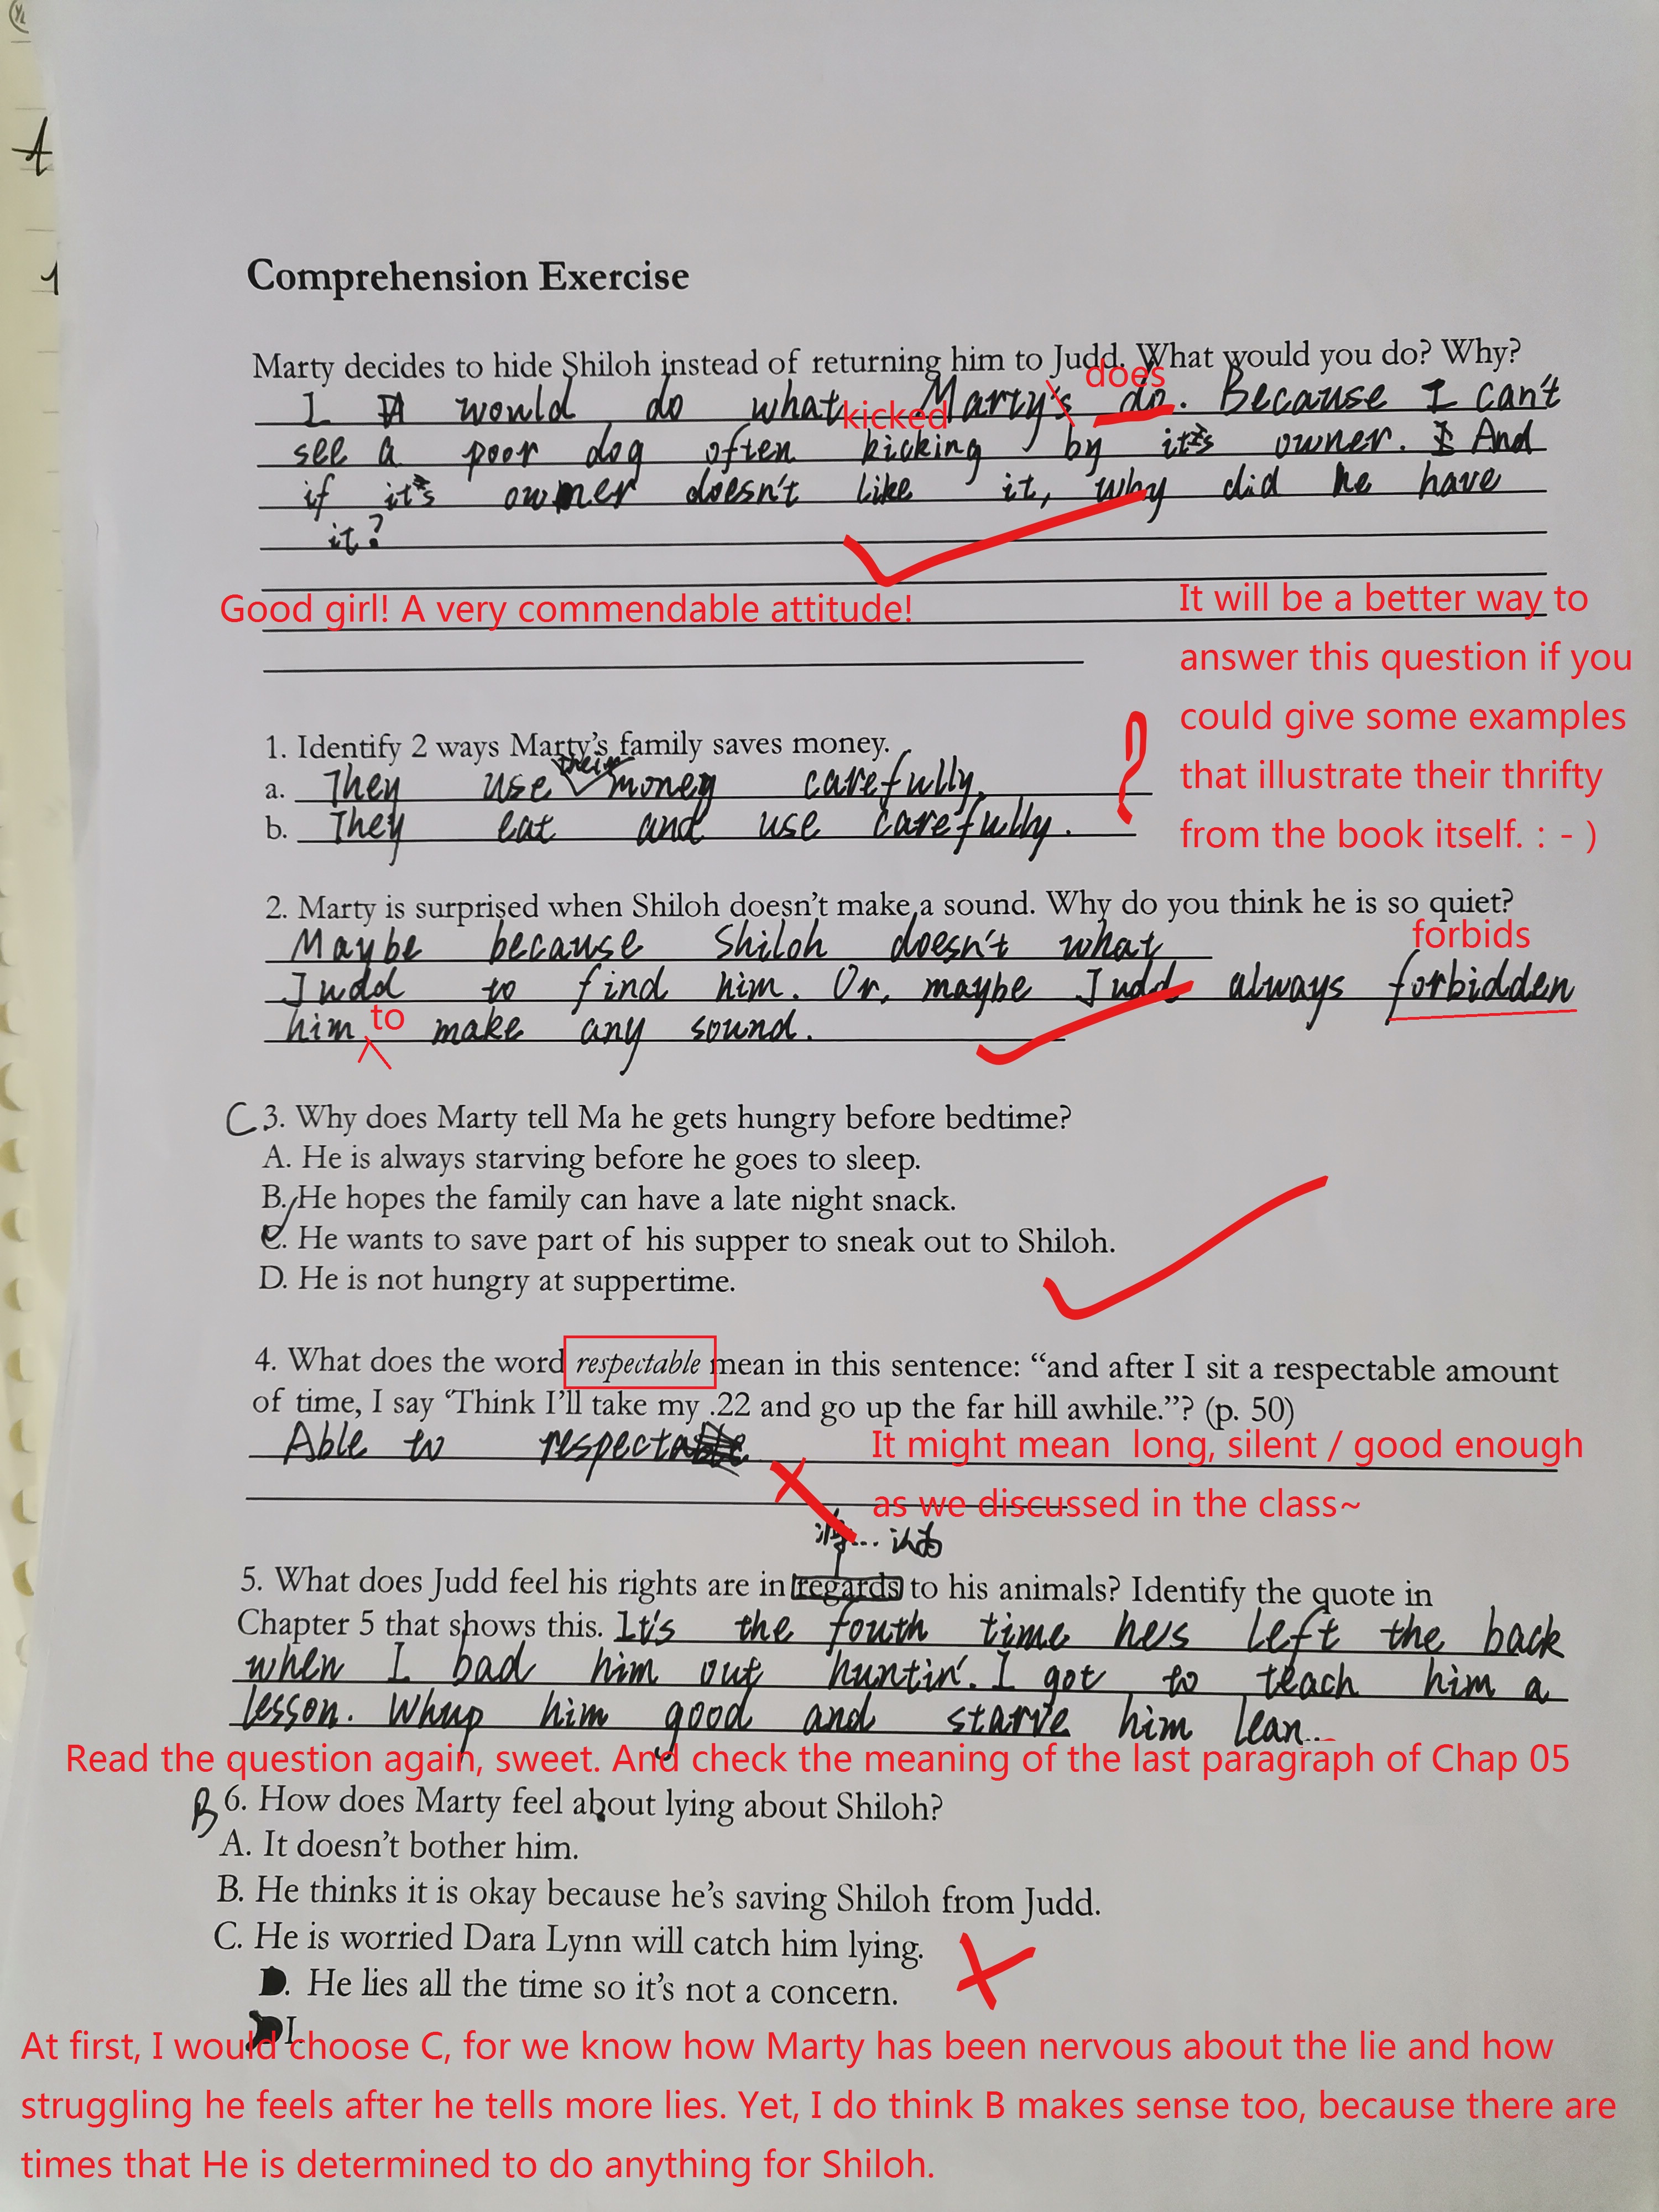 A
1
Comprehension Exercise
Marty decides to hide Shiloh instead of returning him to Judd. What would you do? Why?
does
I would do what Marty's do. Because I can't
kicked
see a poor dog often kicking by it's owner. And
if it's owner doesn't like it, why did he have
it?
Good girl! A very commendable attitude!
It will be a better way to
answer this question if you
could give some examples
that illustrate their thrifty
from the book itself. : - )
1. Identify 2 ways Marty's family saves money.
their
a. They use money carefully.
b. They eat and use carefully.
2. Marty is surprised when Shiloh doesn't make a sound. Why do you think he is so quiet?
Maybe because Shiloh doesn't what
forbids
Judd to find him. Or, maybe Judd always forbidden
to
him make any sound.
C 3. Why does Marty tell Ma he gets hungry before bedtime?
A. He is always starving before he goes to sleep.
B. He hopes the family can have a late night snack.
C. He wants to save part of his supper to sneak out to Shiloh.
D. He is not hungry at suppertime.
4. What does the word respectable mean in this sentence: “and after I sit a respectable amount
of time, I say ‘Think I’ll take my .22 and go up the far hill awhile.”? (p. 50)
Able to respecta
It might mean long, silent / good enough
as we discussed in the class~
将... 认为
5. What does Judd feel his rights are in regards to his animals? Identify the quote in
Chapter 5 that shows this. It's the fouth time he's left the back
when I bad him out huntin'. I got to teach him a
lesson. Whup him good and starve him lean...
Read the question again, sweet. And check the meaning of the last paragraph of Chap 05
B 6. How does Marty feel about lying about Shiloh?
A. It doesn't bother him.
B. He thinks it is okay because he's saving Shiloh from Judd.
C. He is worried Dara Lynn will catch him lying.
D. He lies all the time so it's not a concern.
I.
At first, I would choose C, for we know how Marty has been nervous about the lie and how
struggling he feels after he tells more lies. Yet, I do think B makes sense too, because there are
times that He is determined to do anything for Shiloh.